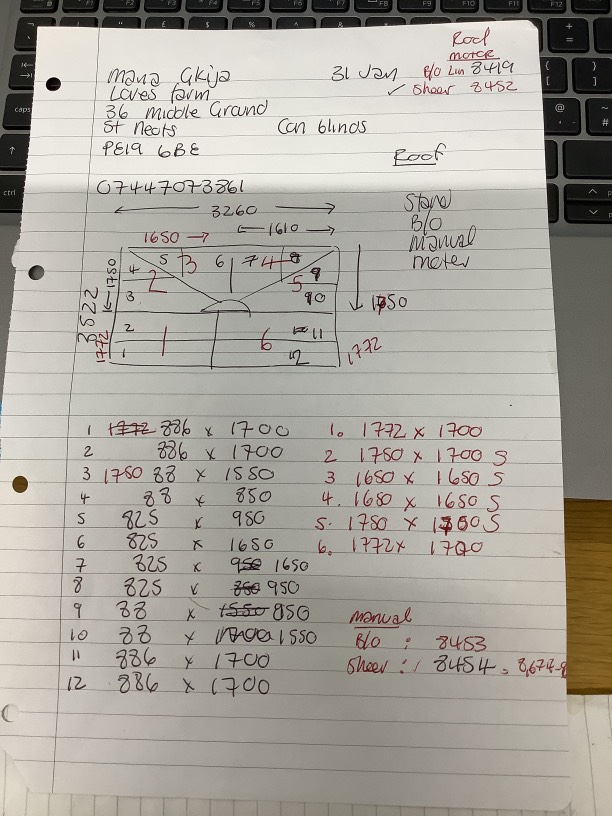 Roof
motor
31 Jan B/O Lin 8419
✓ Sheer 8452
Maria Akija
Loves farm
36 Middle Ground
St Neots Con blinds
PE19 6BE
Roof
07447073861
3260
1650 → ← 1610 →
Stand
B/O
manual
moter
1750
3522
1772
4 5 3 6 7 4 8 9
2 5
3 10
2 11
1 1 6 12
1750
1772
1 1772 886 x 1700
2 886 x 1700
3 1750 88 x 1550
4 88 x 850
5 825 x 950
6 825 x 1650
7 825 x 950 1650
8 825 x 850 950
9 88 x 1550 850
10 88 x 1700 1550
11 886 x 1700
12 886 x 1700
1. 1772 x 1700
2 1750 x 1700 S
3 1650 x 1650 S
4. 1650 x 1650 S
5. 1750 x 1700 S
6. 1772 x 1700
manual
B/O : 8453
Sheer : 8454